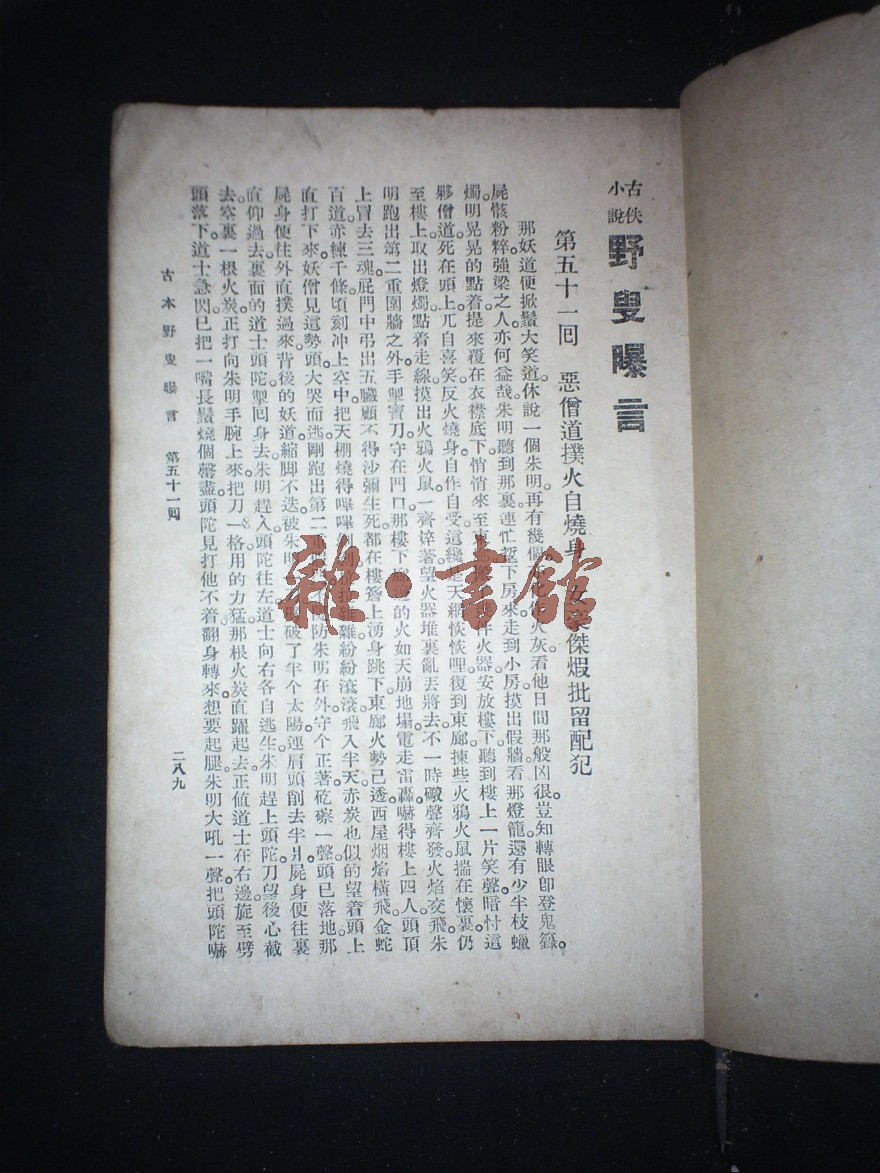 古佚小說 野叟曝言
第五十一回 惡僧道撲火自燒身 女豪傑煆批留配犯
那妖道便掀鬚大笑道。休說一個朱明。再有幾個 火灰。看他日間那般凶很。豈知轉眼卽登鬼籙。
屍骸粉粹。強梁之人。亦何益哉。朱明聽到那裏。連忙踅下房來。走到小房。摸出假牆。看那燈籠。還有少半枝蠟
燭。明晃晃的點着。提來覆在衣襟底下。悄悄來至 火器安放樓下。聽到樓上一片笑聲。暗忖這
夥僧道。死在頭上。兀自喜笑。反火燒身。自作自受。這纔是天網恢恢哩。復到東廊。揀些火鴉火鼠。揣在懷裏。仍
至樓上。取出燈燭。點着走線。摸出火鴉火鼠。一齊焠著。望火器堆裏亂丟將去。不一時礮聲齊發。火焰交飛。朱
明跑出第二重圍牆之外。手掣寳刀。守在門口。那樓下 的火。如天崩地塲。電走雷轟。嚇得樓上四人。頭頂
上冒去三魂。屁門中弔出五臟。顧不得沙彌生死。都在樓簷上湧身跳下。東廊火勢已透西屋。烟焰橫飛。金蛇
百道。赤練千條。頃刻冲上空中。把天棚燒得嗶嗶 雜雜。紛紛滾滾。飛入半天。赤炭也似的。望着頭上
直打下來。妖僧見這勢頭。大哭而逃。剛跑出第二 防朱明在外。守個正著。砣磜一聲。頭已落地。那
屍身便往外直撲過來。背後的妖道。縮脚不迭。被朱明 破了半个太陽。連肩頭削去半爿。屍身便往裏
直仰過去。裏面的道士頭陀。掣囘身去。朱明趕入。頭陀往左。道士向右。各自逃生。朱明趕上頭陀。刀望後心截
去。空裏一根火炭。正打向朱明手腕上來。把刀一格。用的力猛。那根火炭直躍起去。正値道士在右邊旋至。劈
頭落下。道士急閃。已把一嘴長鬚。燒個罄盡。頭陀見打他不着。翻身轉來。想要起腿。朱明大吼一聲。把頭陀嚇
古本野叟曝言 第五十一囘 二八九
雜·書館